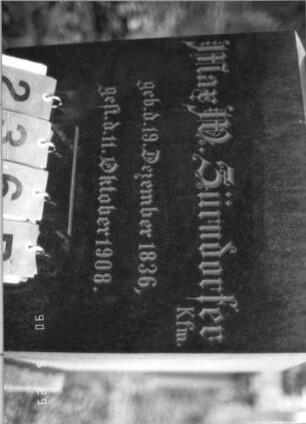 Max W. Sürndorfer
Kfm.
geb. d. 19. Dezember 1836,
gest. d. 11. Oktober 1908.
236